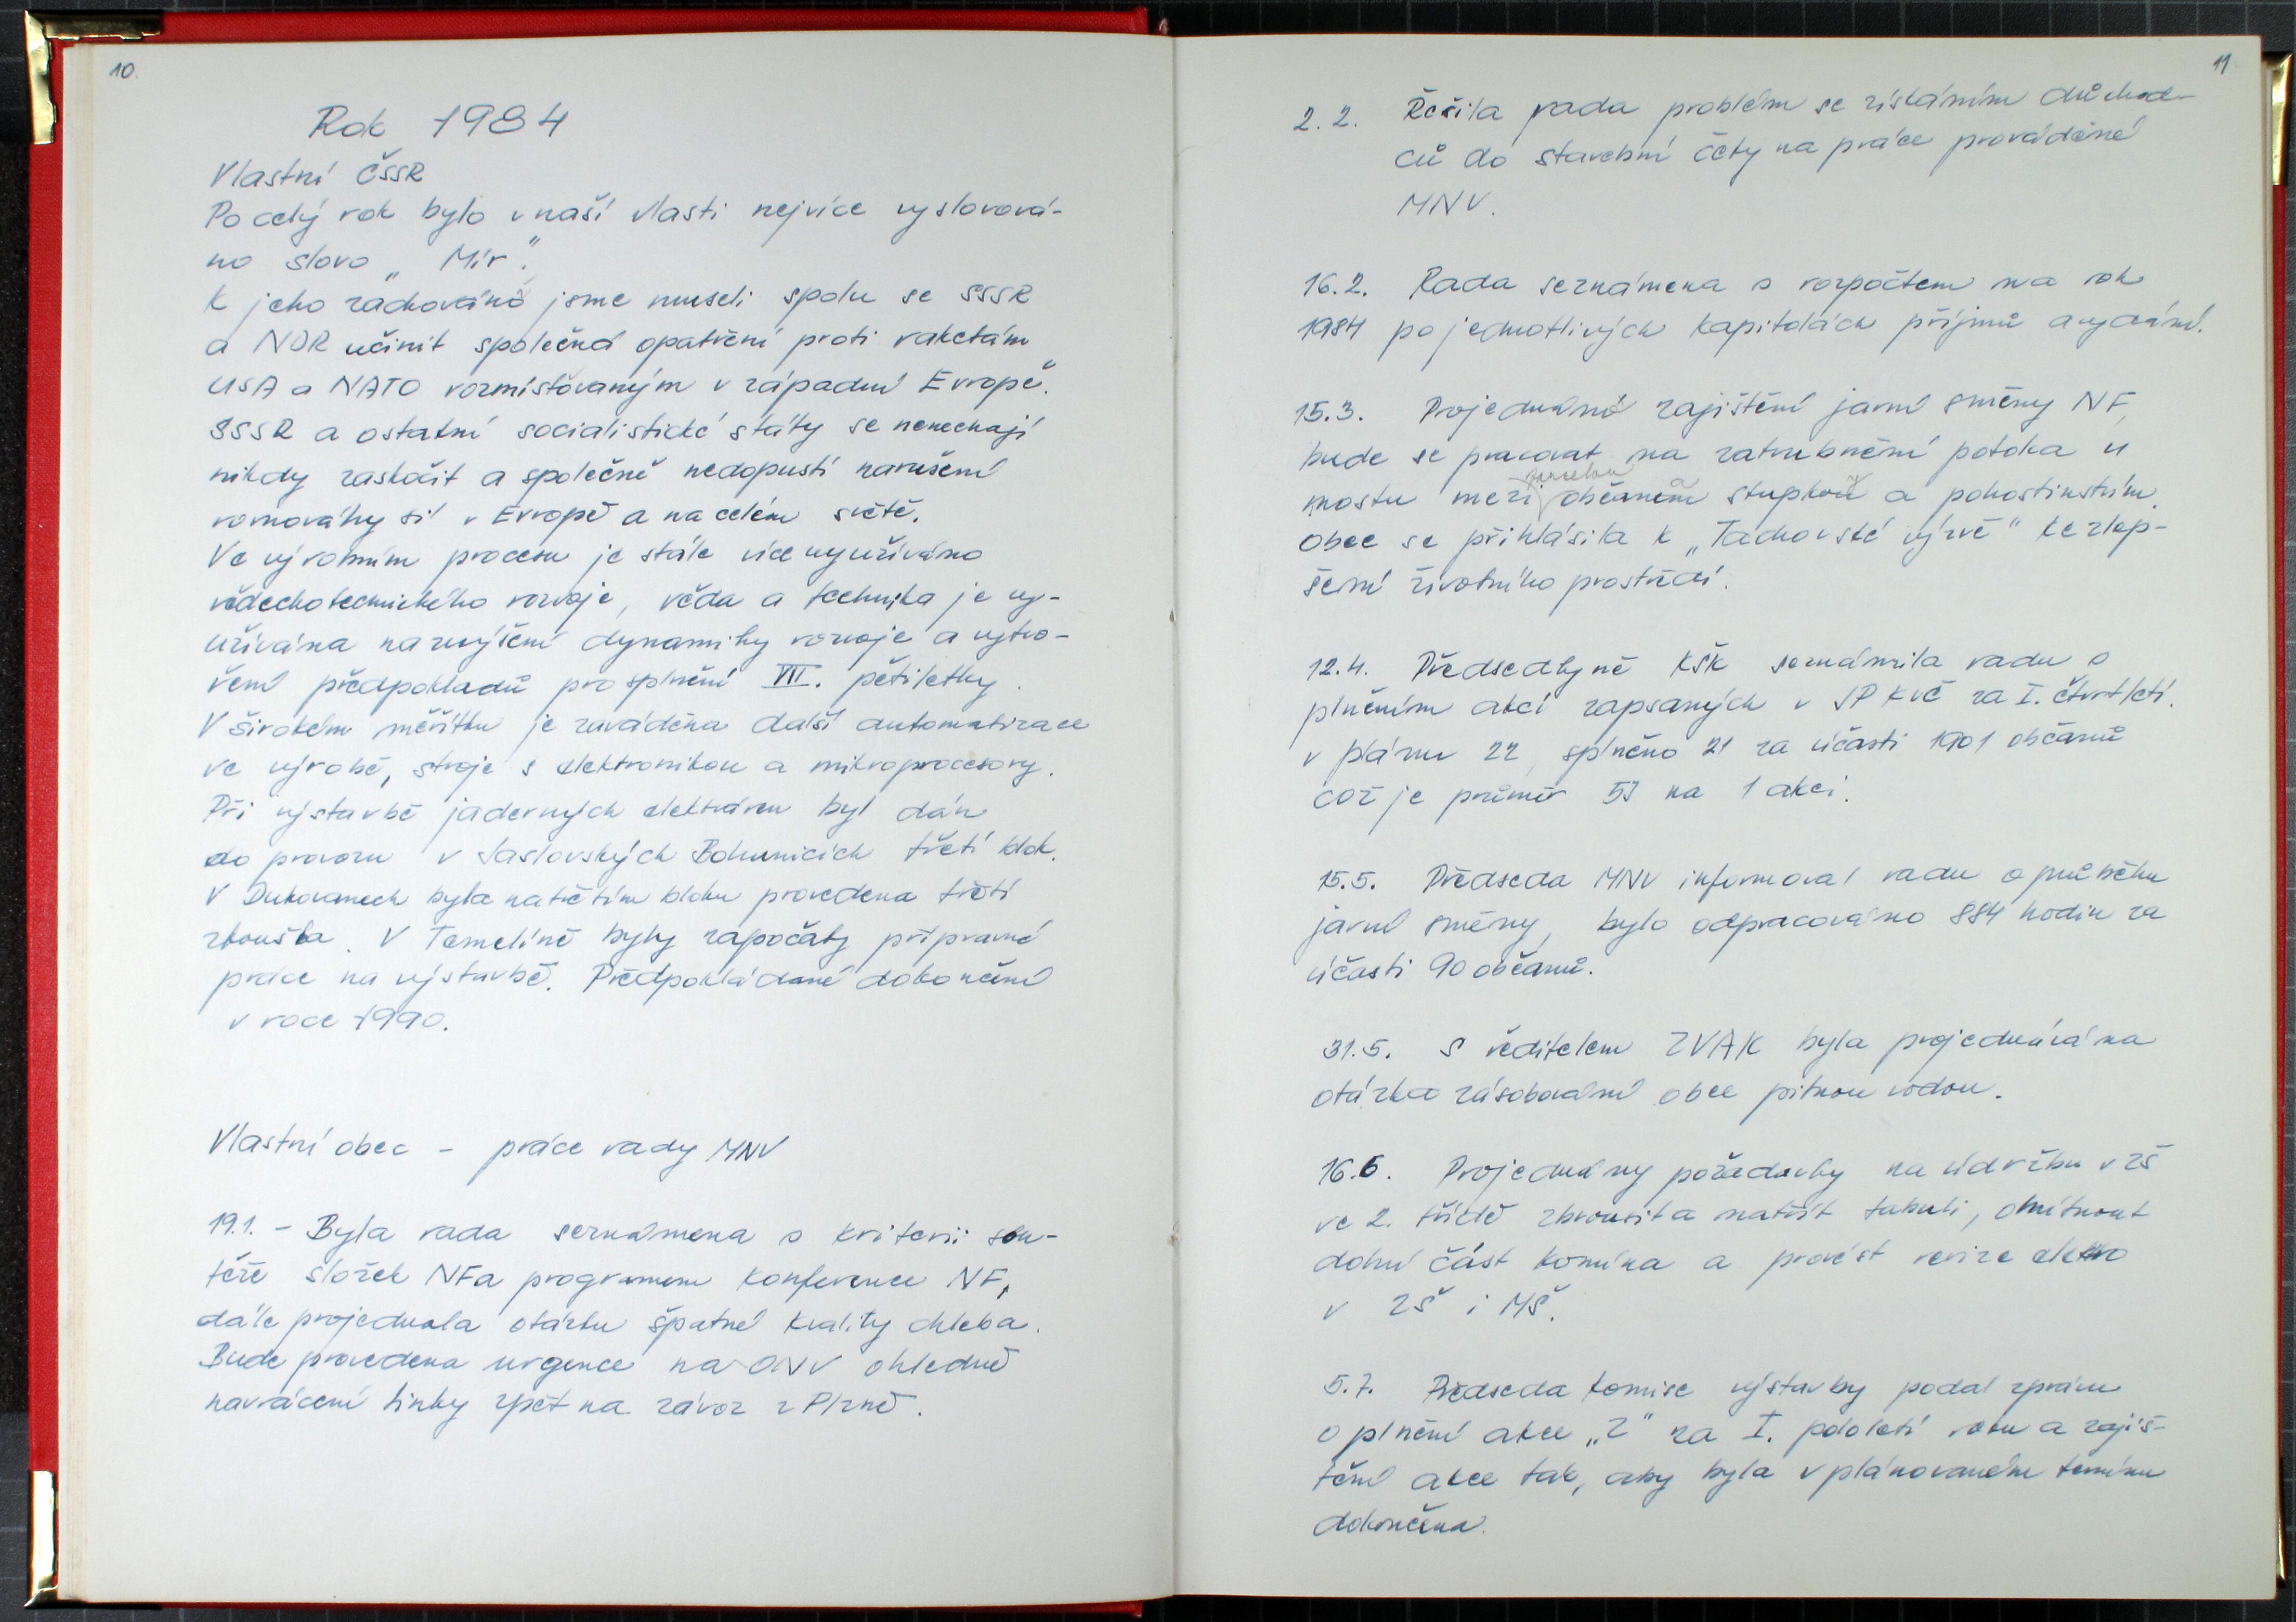 10
Rok 1984
Vlastní ČSSR
Po celý rok bylo v naší vlasti nejvíce vyslovová-
no slovo „Mír“.
K jeho zachování jsme museli spolu se SSSR
a NDR učinit společná opatření proti raketám
USA a NATO rozmisťovaným v západní Evropě.
SSSR a ostatní socialistické státy se nenechají
nikdy zaskočit a společně nedopustí narušení
rovnováhy sil v Evropě a na celém světě.
Ve výrobním procesu je stále více využíváno
vědechotechnického rozvoje, věda a technika je vy-
užívána na zvýšení dynamiky rozvoje a vytvo-
ření předpokladů pro splnění VII. pětiletky.
V širokém měřítku je zaváděna další automatizace
ve výrobě, stroje s elektronikou a mikroprocesory.
Při výstavbě jaderných elektráren byl dán
do provozu v Jaslovských Bohunicích třetí blok.
V Dukovanech byla na třetím bloku provedena třetí
zkouška. V Temelíně byly započaty přípravné
práce na výstavbě. Předpokládané dokončení
v roce 1990.
Vlastní obec - práce rady MNV
19.1. - Byla rada seznámena s kriterii sou-
těže složek NF a programem konference NF,
dále projednala otázku špatné kvality chleba.
Bude provedena urgence na ONV ohledně
navrácení linky zpět na závoz z Plzně.
11
2.2. Řešila rada problém se získáním důchod-
ců do stavební čety na práce prováděné
MNV.
16.2. Rada seznámena s rozpočtem na rok
1984 po jednotlivých kapitolách příjmů a vydání.
15.3. Projednáno zajištění jarní směny NF,
bude se pracovat na zatrubnění potoka u
mostu mezi občanem Stupkou a pohostinstvím.
Obec se přihlásila k „Tachovské výzvě“ ke zlep-
šení životního prostředí.
12.4. Předsedkyně KŠK seznámila radu s
plněním akcí zapsaných v JPKVČ za I. čtvrtletí.
v plánu 22, splněno 21 za účasti 1901 občanů
což je průměr 53 na 1 akci.
15.5. Předseda MNV informoval radu o průběhu
jarní směny, bylo odpracováno 884 hodin za
účasti 90 občanů.
31.5. S ředitelem ZVAK byla projednávána
otázka zásobování obce pitnou vodou.
16.6. Projednány požadavky na údržbu v ZŠ
ve 2. třídě zbrousit a natřít tabuli, omítnout
dolní část komína a provést revize elektro
v ZŠ i MŠ.
5.7. Předseda komise výstavby podal zprávu
o plnění akce „Z“ za I. pololetí roku a zajiš-
tění akce tak, aby byla v plánovaném termínu
dokončena.